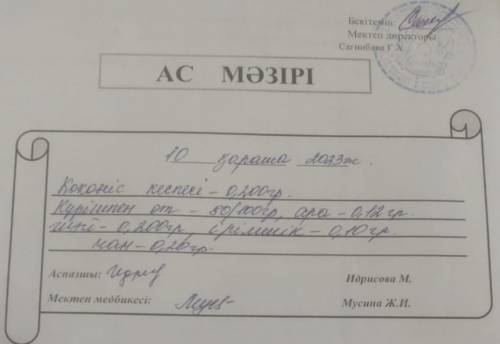 Бекітемін:
Мектеп директоры
Сагнибаева Г.Х.
АС МӘЗІРІ
10 қараша 2023ж.
Көкөніс кеспесі - 0,200гр.
Күрішпен ет - 50/100гр, - 0,12гр.
- 0,200гр, ірімшік - 0,10гр.
нан - 0,20гр.
Аспазшы: Идрисова М.
Мектеп медбикесі: Мусина Ж.И.